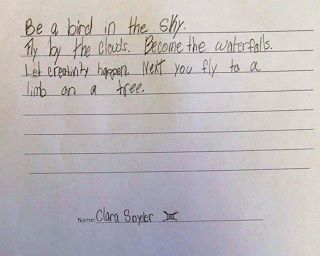 Be a bird in the sky.
Fly by the clouds. Become the waterfalls.
Let creativity happen. Next you fly to a
limb on a tree.
Name: Clara Snyder